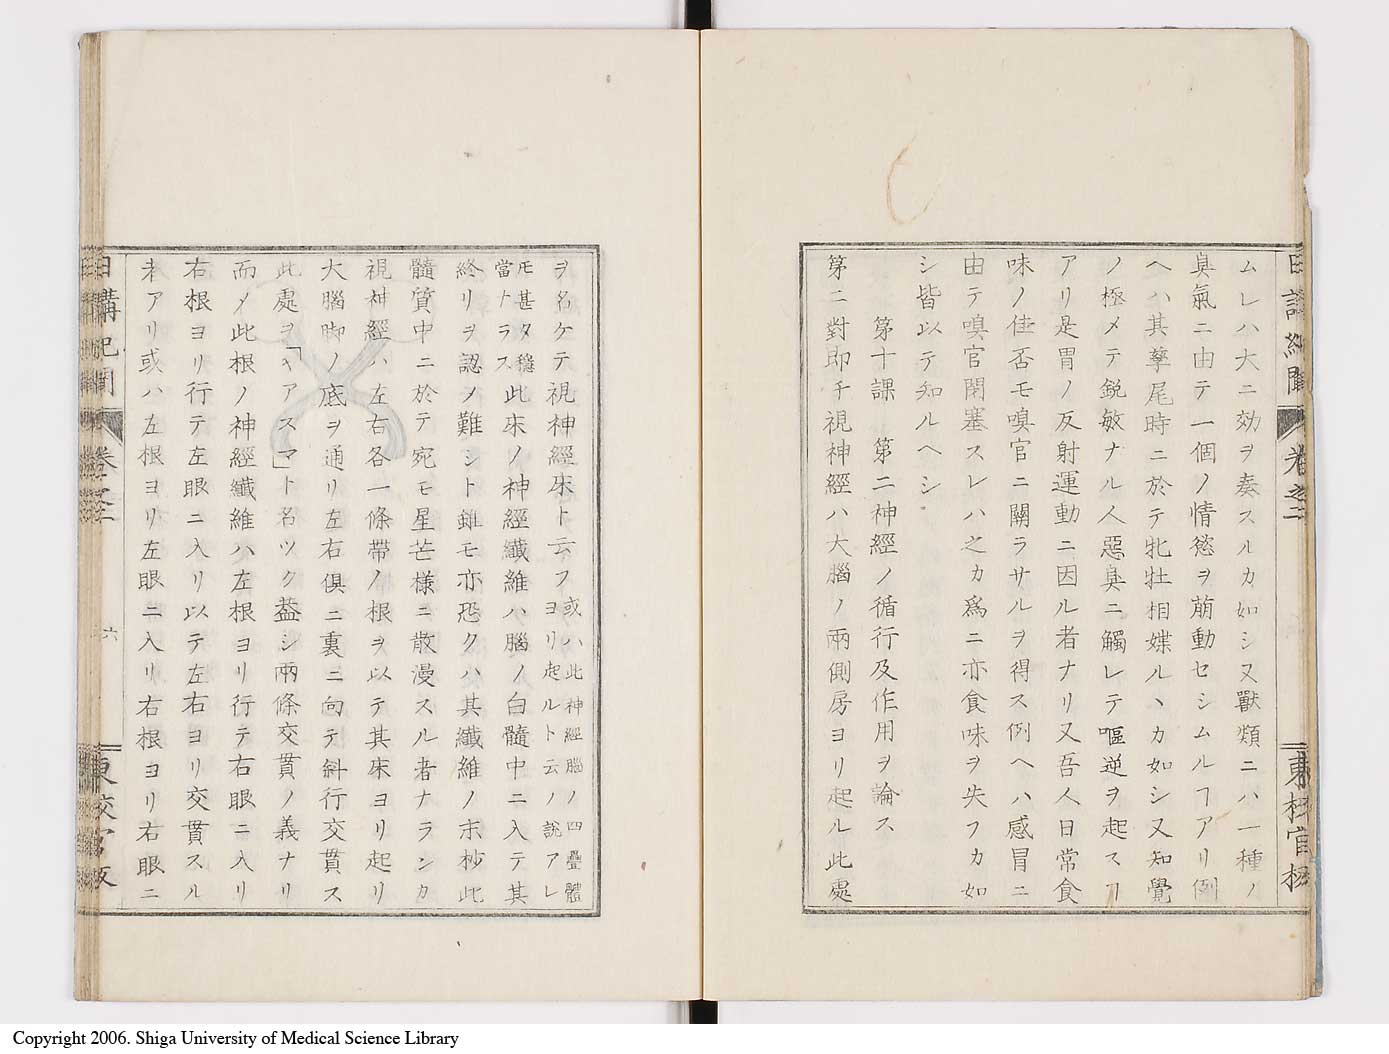 ムレハ大ニ効ヲ奏スルカ如シ又獸類ニハ一種ノ
臭氣ニ由テ一個ノ情慾ヲ萠動セシムルヿアリ例
ヘハ其孳尾時ニ於テ牝牡相媟ルヽカ如シ又知覺
ノ極メテ鋭敏ナル人惡臭ニ觸レテ嘔逆ヲ起スヿ
アリ是胃ノ反射運動ニ因ル者ナリ又吾人日常食
味ノ佳否モ嗅官ニ關ラサルヲ得ス例ヘハ感冒ニ
由テ嗅官閉塞スレハ之カ爲ニ亦食味ヲ失フカ如
シ皆以テ知ルヘシ
第十課 第二神經ノ循行及作用ヲ論ス
第二對即チ視神經ハ大腦ノ兩側房ヨリ起ル此處
日講紀聞 卷之二
東校官板
ヲ名ケテ視神經床ト云フ或ハ此神經腦ノ四疊體ヨリ起ルト云ノ説アレ
モ甚タ穩當ナラス此床ノ神經纖維ハ腦ノ白髓中ニ入テ其
終リヲ認メ難シト雖モ亦恐クハ其纖維ノ末杪此
髓質中ニ於テ宛モ星芒様ニ散漫スル者ナランカ
視神經ハ左右各一條帶ノ根ヲ以テ其床ヨリ起リ
大腦脚ノ底ヲ通リ左右倶ニ裏ニ向テ斜行交貫ス
此處ヲ「キアスマ」ト名ツク葢シ兩條交貫ノ義ナリ
而メ此根ノ神經纖維ハ左根ヨリ行テ右眼ニ入リ
右根ヨリ行テ左眼ニ入リ以テ左右ヨリ交貫スル
者アリ或ハ左根ヨリ左眼ニ入リ右根ヨリ右眼ニ
日講紀聞 卷之二
六
東校官板
Copyright 2006. Shiga University of Medical Science Library